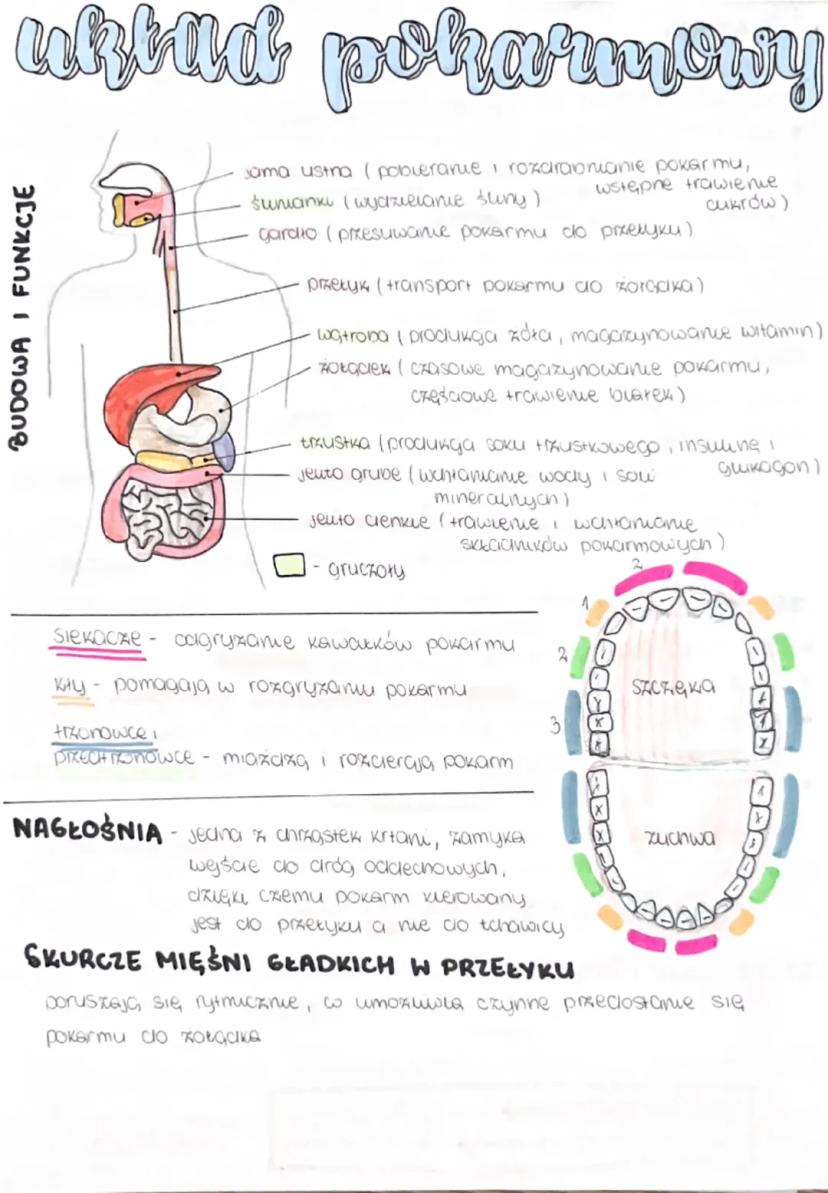 układ pokarmowy
BUDOWA I FUNKCJE
jama ustna (pobieranie i rozdrabnianie pokarmu,
wstępne trawienie
cukrów)
ślinianki (wydzielanie śliny)
gardło (przesuwanie pokarmu do przełyku)
przełyk (transport pokarmu do żołądka)
wątroba (produkcja żółci, magazynowanie witamin)
żołądek (czasowe magazynowanie pokarmu,
częściowe trawienie białek)
trzustka (produkcja soku trzustkowego, insuliny i
glukagon)
jelito grube (wchłanianie wody i soli
mineralnych)
jelito cienkie (trawienie i wchłanianie
składników pokarmowych)
- gruczoły
2
1
2
3
szczęka
żuchwa
siekacze - odgryzanie kawałków pokarmu
kły - pomagają w rozgryzaniu pokarmu
trzonowce i
przedtrzonowce - miażdżą i rozcierają pokarm
NAGŁOŚNIA - jedna z chrząstek krtani, zamyka
wejście do dróg oddechowych,
dzięki czemu pokarm kierowany
jest do przełyku a nie do tchawicy
SKURCZE MIĘŚNI GŁADKICH W PRZEŁYKU
poruszają się rytmicznie, co umożliwia czynne przedostanie się
pokarmu do żołądka